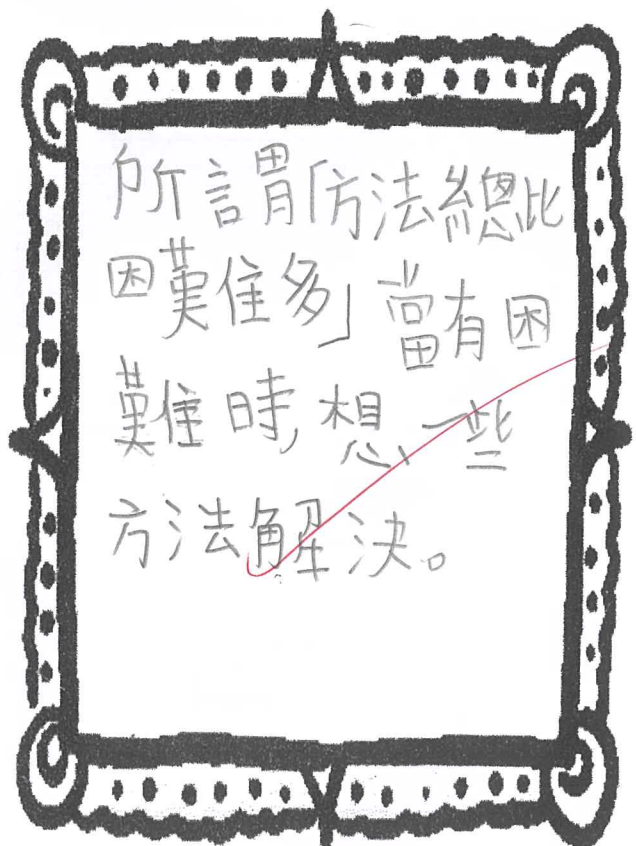 所謂「方法總比
困難多」當有困
難時,想一些
方法解決。